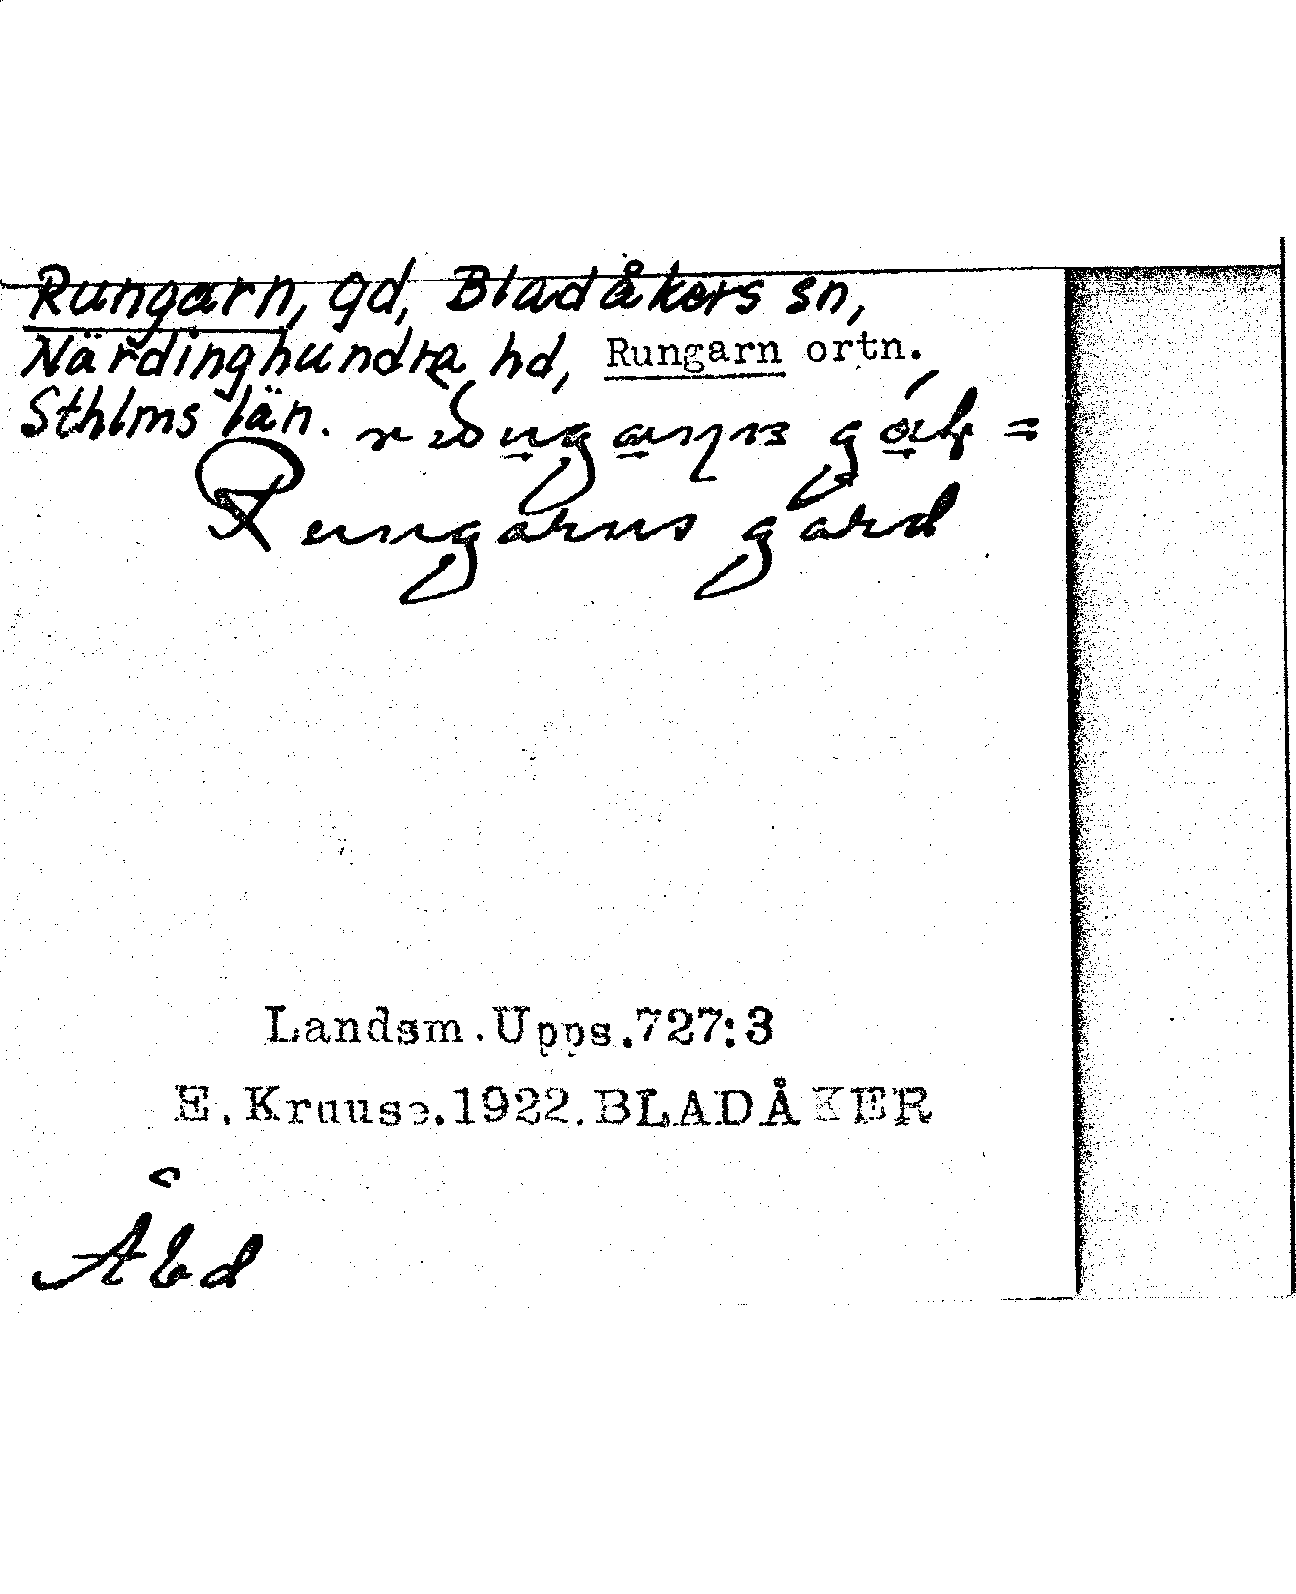 Rungarn, gd, Bladåkers sn,
Närdinghundra hd, Rungarn ortn.
Sthlms län.
Rungarns gård
Landsm.Upps.727:3
E.Krause.1922.BLADÅKER
Åbd